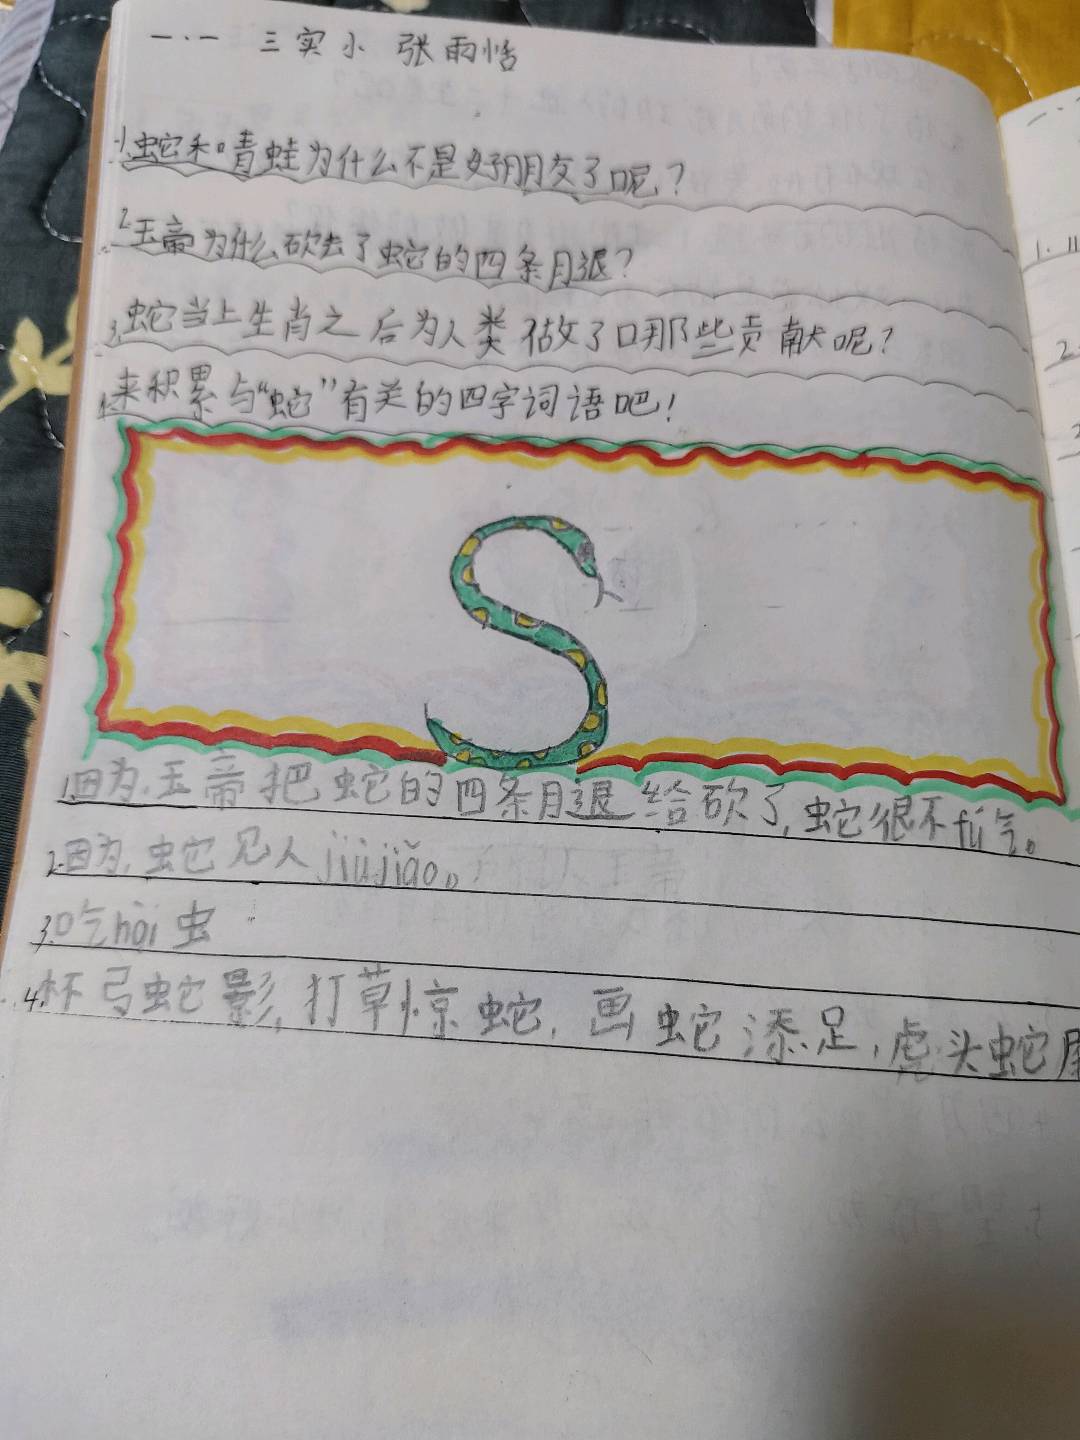 一.一 三实小 张雨恬
1.蛇和青蛙为什么不是好朋友了呢?
2.玉帝为什么砍去了蛇的四条腿?
3.蛇当上生肖之后为人类做了哪些贡献呢?
4.来积累与“蛇”有关的四字词语吧!
1.因为,玉帝把蛇的四条腿给砍了,蛇很不fú气。
2.因为,蛇见人jiùjiǎo。
3.吃hài虫
4.杯弓蛇影,打草惊蛇,画蛇添足,虎头蛇尾